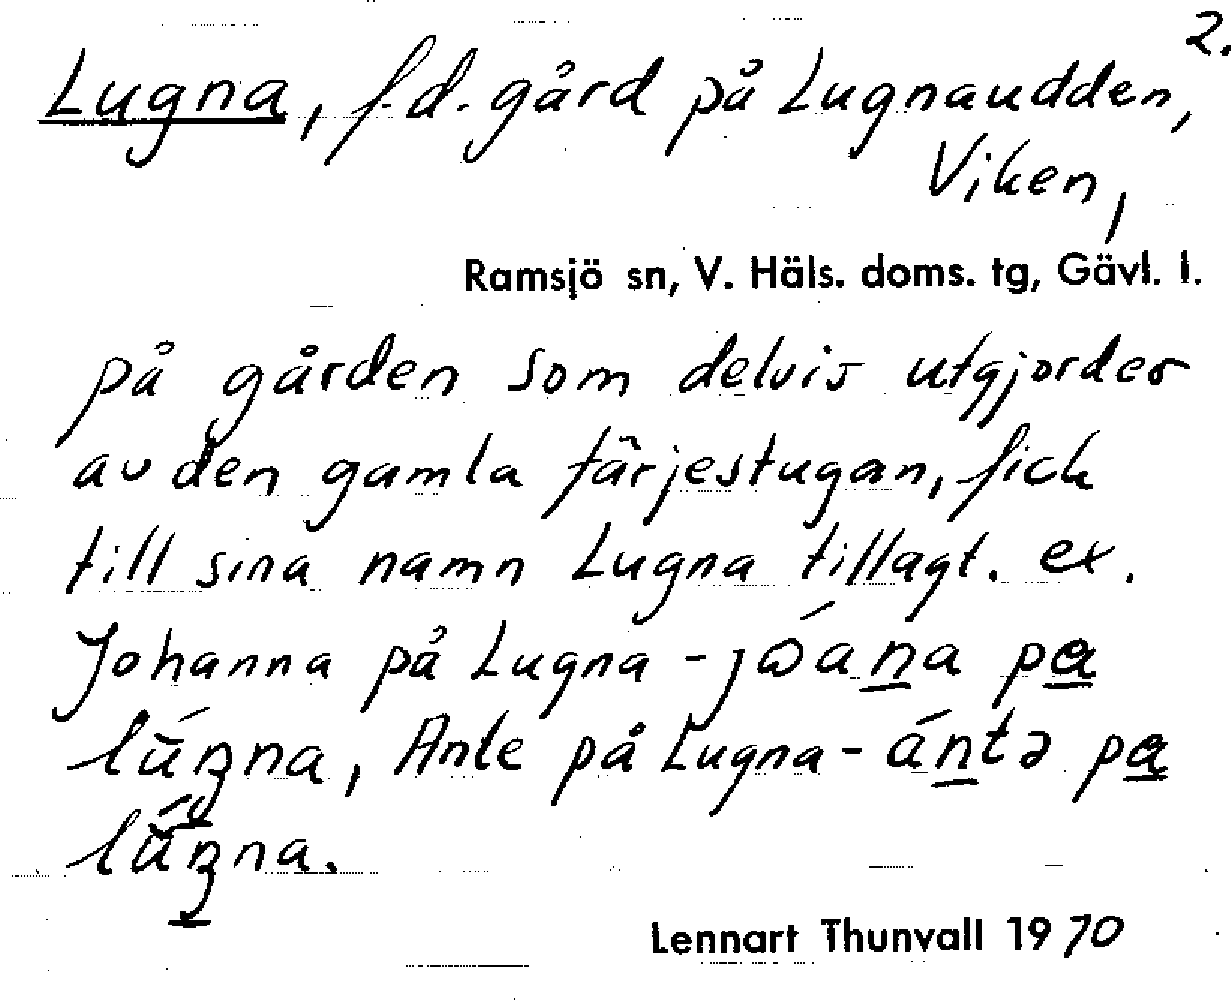 2.
Lugna, f.d. gård på Lugnaudden,
Viken,
Ramsjö sn, V. Häls. doms. tg, Gävl. l.
på gården som delvis utgjordes
av den gamla färjestugan, fick
till sina namn Lugna tillagt. ex.
Johanna på Lugna - jɷ́ana pa
lʉ́ŋna, Ante på Lugna - ántə pa
lʉ́ŋna.
Lennart Thunvall 1970